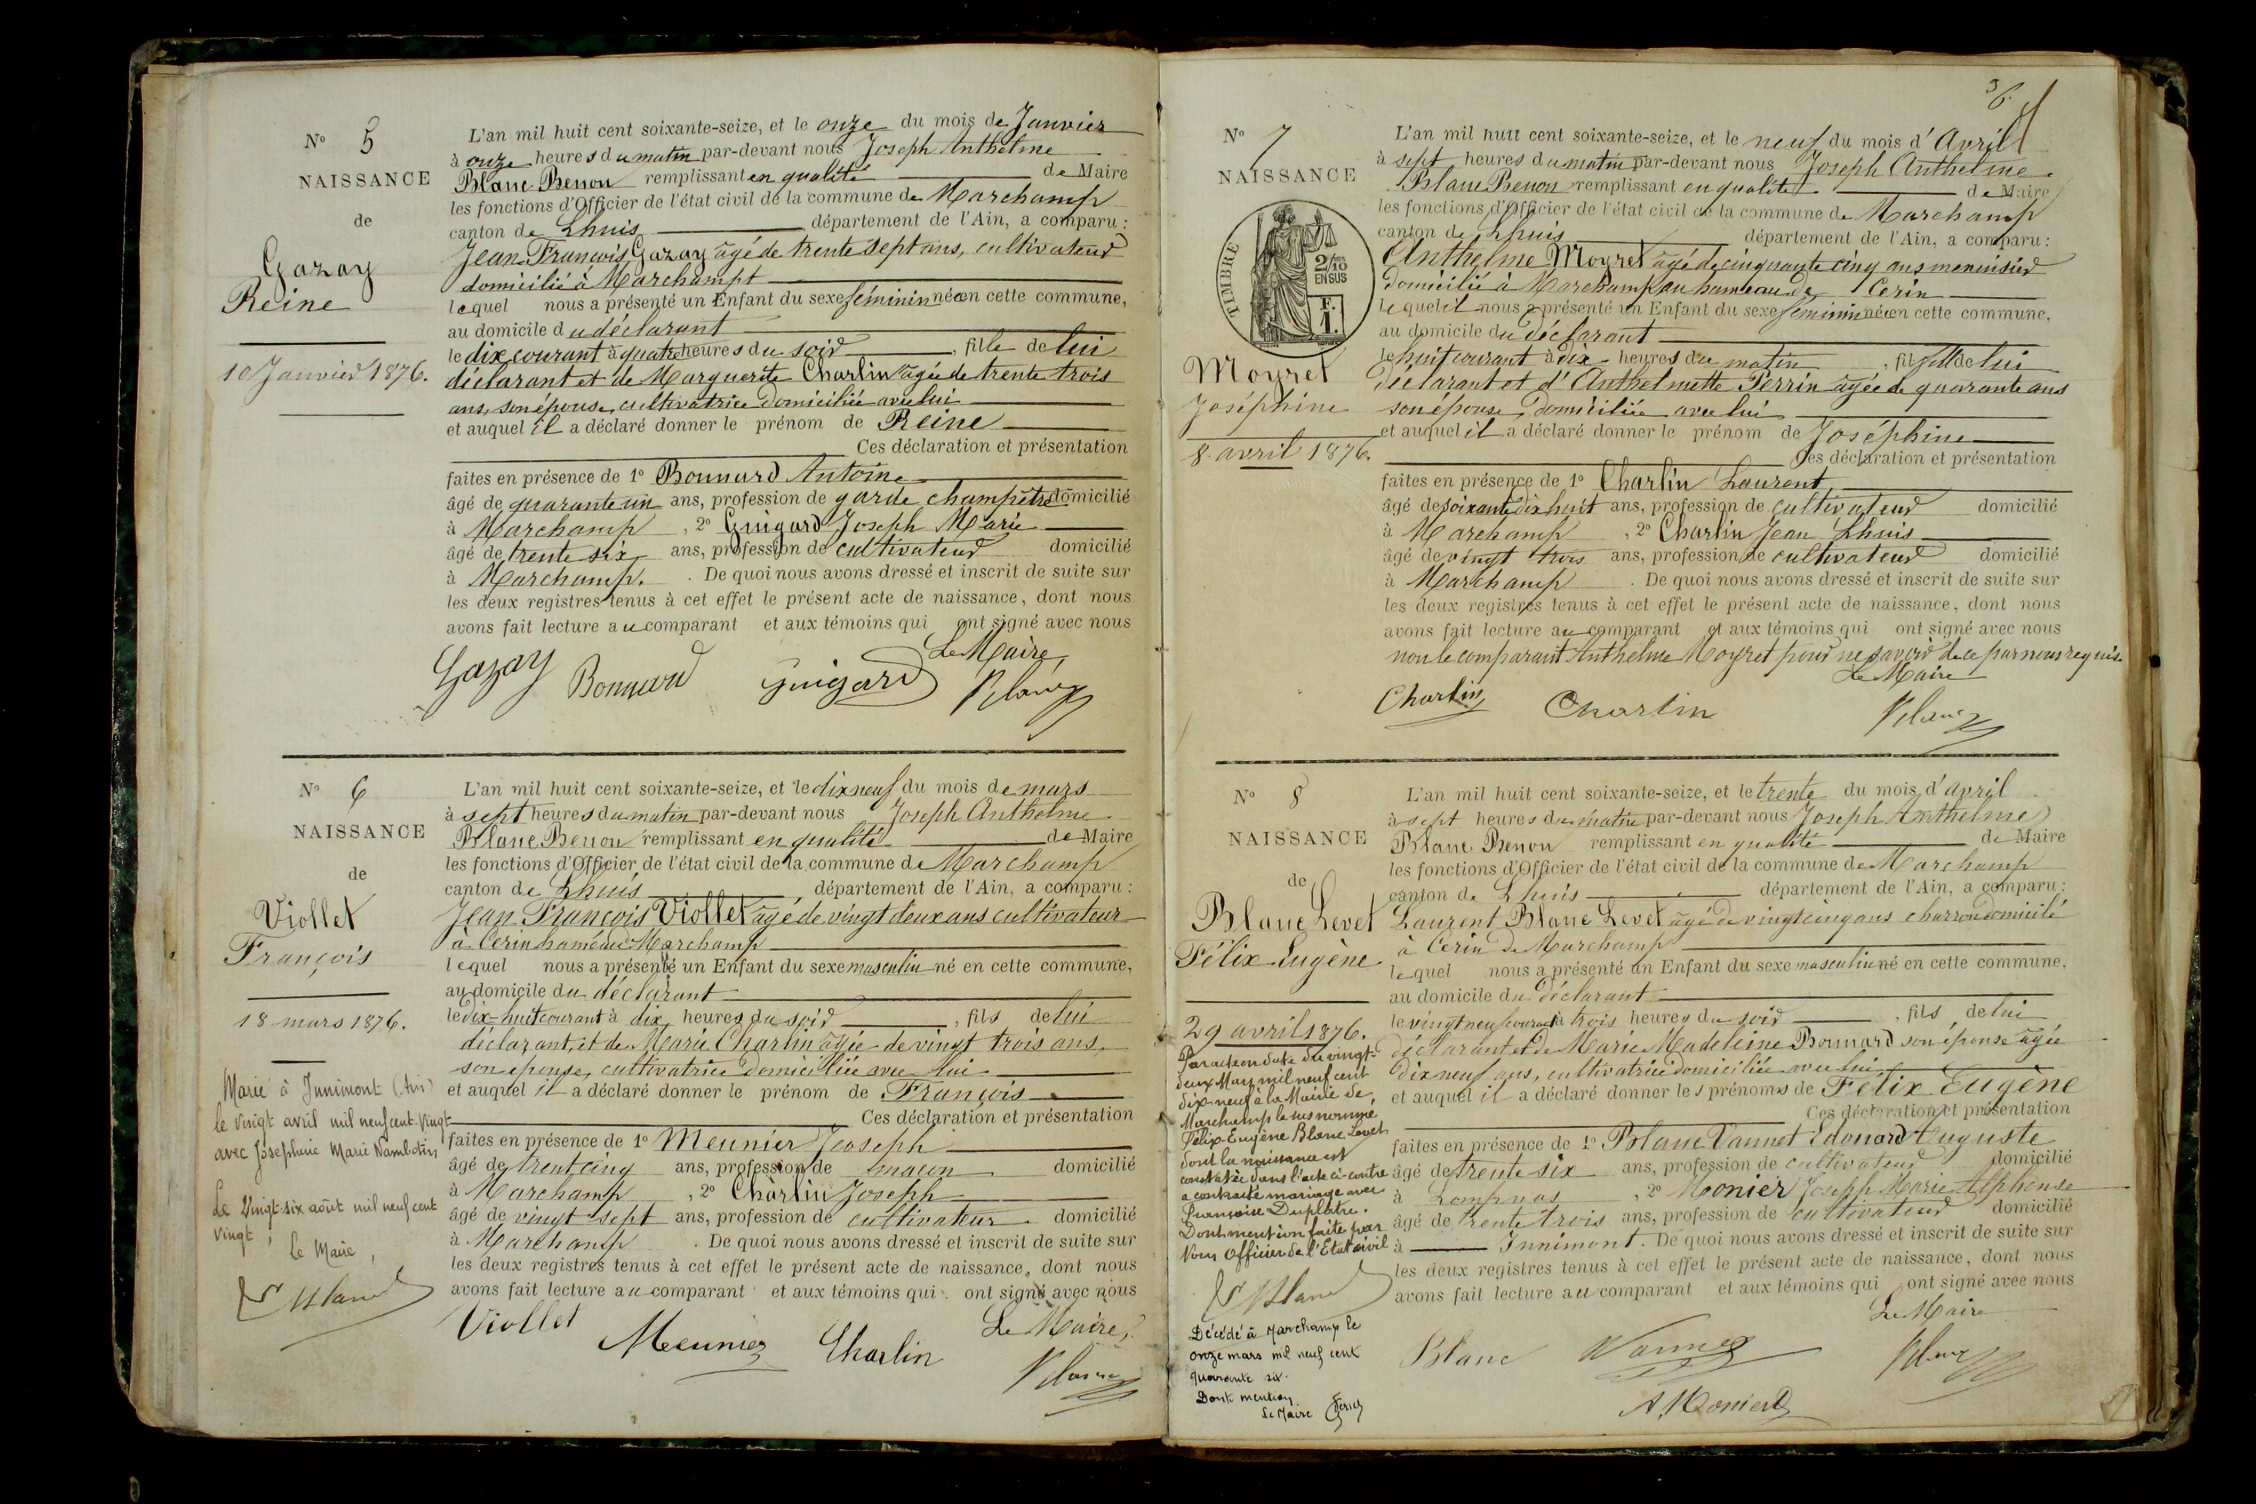 N° 5
NAISSANCE
de
Gazay
Reine
10 Janvier 1876.
L'an mil huit cent soixante-seize, et le onze du mois de Janvier
à onze heures du matin par-devant nous Joseph Anthelme
Blanc Benon remplissant en qualité de Maire
les fonctions d'Officier de l'état civil de la commune de Marchamp
canton de Lhuis département de l'Ain, a comparu :
Jean-François Gazay âgé de trente sept ans, cultivateur
domicilié à Marchampt
lequel nous a présenté un Enfant du sexe féminin née en cette commune,
au domicile du déclarant
le dix courant à quatre heures du soir, fille de lui
déclarant et de Marguerite Charlin âgée de trente trois
ans, son épouse, cultivatrice domiciliée avec lui
et auquel il a déclaré donner le prénom de Reine
Ces déclaration et présentation
faites en présence de 1° Bonnard Antoine
âgé de quarante un ans, profession de garde champêtre domicilié
à Marchamp, 2° Guigard Joseph Marie
âgé de trente six ans, profession de cultivateur domicilié
à Marchamp. De quoi nous avons dressé et inscrit de suite sur
les deux registres tenus à cet effet le présent acte de naissance, dont nous
avons fait lecture au comparant et aux témoins qui ont signé avec nous
Le Maire,
Gazay Bonnard Guigard Blanc
N° 6
NAISSANCE
de
Viollet
François
18 mars 1876.
Marié à Innimont (Ain)
le vingt avril mil neuf cent vingt
avec Joséphine Marie
Le vingt-six août mil neuf cent
vingt,
Le Maire,
Blanc
L'an mil huit cent soixante-seize, et le dix neuf du mois de mars
à sept heures du matin par-devant nous Joseph Anthelme
Blanc Benon remplissant en qualité de Maire
les fonctions d'Officier de l'état civil de la commune de Marchamp
canton de Lhuis département de l'Ain, a comparu :
Jean-François Viollet âgé de vingt deux ans cultivateur
à Cerin hameau de Marchamp
lequel nous a présenté un Enfant du sexe masculin né en cette commune,
au domicile du déclarant
le dix-huit courant à dix heures du soir, fils de lui
déclarant, et de Marie Charlin âgée de vingt trois ans,
son épouse, cultivatrice domiciliée avec lui
et auquel il a déclaré donner le prénom de François
Ces déclaration et présentation
faites en présence de 1° Meunier Joseph
âgé de trent cinq ans, profession de maçon domicilié
à Marchamp, 2° Charlin Joseph
âgé de vingt sept ans, profession de cultivateur domicilié
à Marchamp. De quoi nous avons dressé et inscrit de suite sur
les deux registres tenus à cet effet le présent acte de naissance, dont nous
avons fait lecture au comparant et aux témoins qui ont signé avec nous
Le Maire,
Viollet Meunier Charlin Blanc
36
N° 7
NAISSANCE
TIMBRE
2/10
EN SUS
F.
1.
Moyret
Joséphine
8 avril 1876.
L'an mil huit cent soixante-seize, et le neuf du mois d'Avril
à sept heures du matin par-devant nous Joseph Anthelme
Blanc Benon remplissant en qualité de Maire
les fonctions d'Officier de l'état civil de la commune de Marchamp
canton de Lhuis département de l'Ain, a comparu :
Anthelme Moyret âgé de cinquante cinq ans menuisier
domicilié à Marchamp au hameau de Cerin
lequel il nous a présenté un Enfant du sexe féminin née en cette commune,
au domicile du déclarant
le huit courant à dix heures du matin, fille de lui
déclarant et d'Anthelmette Perrin âgée de quarante ans
son épouse, domiciliée avec lui
et auquel il a déclaré donner le prénom de Joséphine
Ces déclaration et présentation
faites en présence de 1° Charlin Laurent
âgé de soixante dix huit ans, profession de cultivateur domicilié
à Marchamp, 2° Charlin Jean Lhuis
âgé de vingt trois ans, profession de cultivateur domicilié
à Marchamp. De quoi nous avons dressé et inscrit de suite sur
les deux registres tenus à cet effet le présent acte de naissance, dont nous
avons fait lecture au comparant et aux témoins qui ont signé avec nous
non le comparant Anthelme Moyret pour ne savoir de ce par nous requis.
Le Maire
Charlin Charlin Blanc
N° 8
NAISSANCE
de
Blanc Levet
Félix Eugène
29 avril 1876.
Par acte en date du vingt-
deux Mars mil neuf cent
dix-neuf à la Mairie de
Marchamp le susnommé
Félix-Eugène Blanc Levet
dont la naissance est
constatée dans l'acte ci-contre
a contracté mariage avec
Françoise Duplatre.
Dont mention faite par
Nous Officier de l'Etat civil
Blanc
Décédé à Marchamp le
onze mars mil neuf cent
quarante six.
Dont mention
Le Maire
L'an mil huit cent soixante-seize, et le trente du mois d'avril
à sept heures du matin par-devant nous Joseph Anthelme
Blanc Benon remplissant en qualité de Maire
les fonctions d'Officier de l'état civil de la commune de Marchamp
canton de Lhuis département de l'Ain, a comparu :
Laurent Blanc Levet âgé de vingt cinq ans charron domicilié
à Cerin de Marchamp
lequel nous a présenté un Enfant du sexe masculin né en cette commune,
au domicile du déclarant
le vingt neuf courant à trois heures du soir, fils de lui
déclarant et de Marie Madeleine Bonnard son épouse âgée
dix neuf ans, cultivatrice domiciliée avec lui
et auquel il a déclaré donner les prénoms de Félix Eugène
Ces déclaration et présentation
faites en présence de 1° Blanc Vannet Edouard Auguste
âgé de trente six ans, profession de cultivateur domicilié
à Lompnas, 2° Monier Joseph Marie Alphonse
âgé de trente trois ans, profession de cultivateur domicilié
à Innimont. De quoi nous avons dressé et inscrit de suite sur
les deux registres tenus à cet effet le présent acte de naissance, dont nous
avons fait lecture au comparant et aux témoins qui ont signé avec nous
Le Maire
Blanc Vannet Blanc
A. Monier